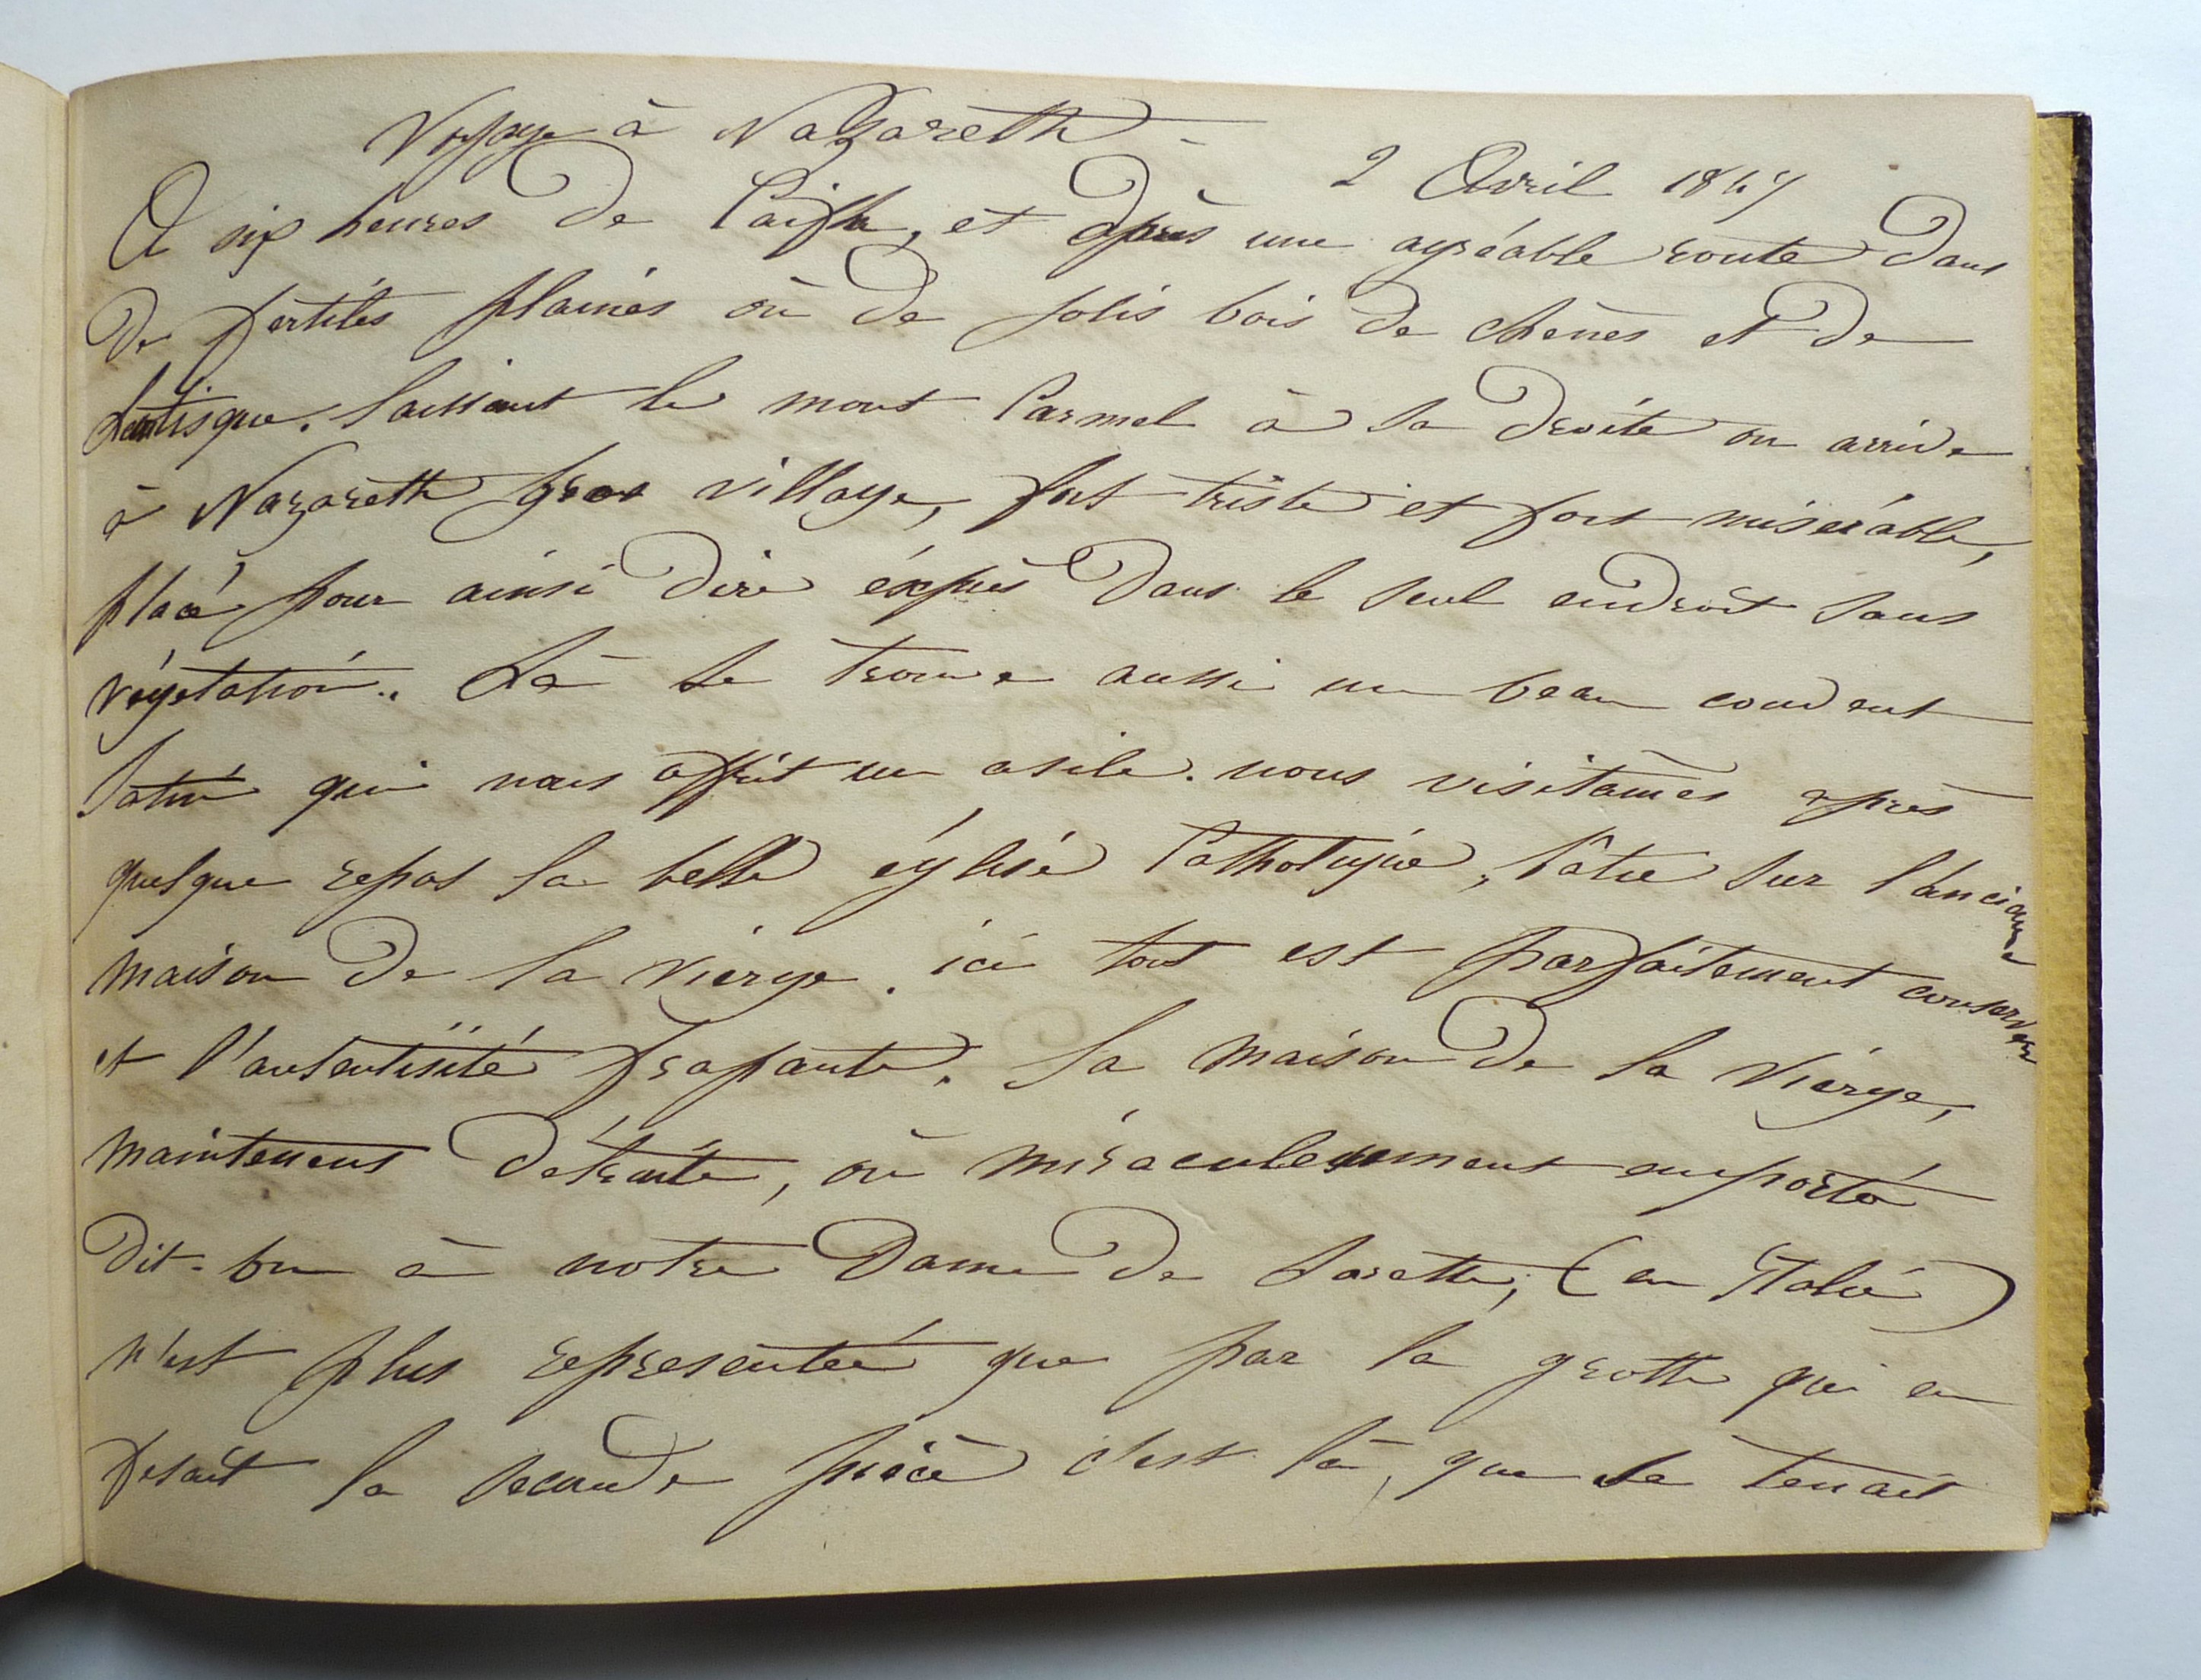 Voyage à Nazareth –
2 Avril 1847
A six heures de Caïfa, et après une agréable route dans
de fertiles plaines où de jolis bois de chênes et de
Lentisque. laissant le mont Carmel à sa droite on arrive
à Nazareth gros village, fort triste et fort misérable,
placé pour ainsi dire éxprès dans le seul endroit sans
végétation. Là se trouve aussi un beau couvent
latin qui nous offrit un asile. nous visitâmes après
quelque repos la belle église Catholique, batie sur l'ancienne
maison de la vierge. ici tout est parfaitement conserver
et l'autentisité frapante. la maison de la vierge,
maintenent détruite, où miraculeusement emporté
dit-on à notre Dame de Lorette, (en Italie)
n'est plus representée que par la grotte qui en
fesait la seconde pièce c'est là, que se tenait